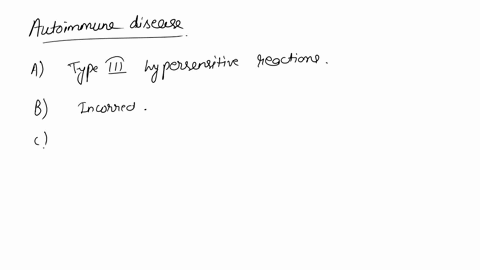 Autoimmune disease
A) Type III hypersensitive reactions.
B) Incorred.
C)